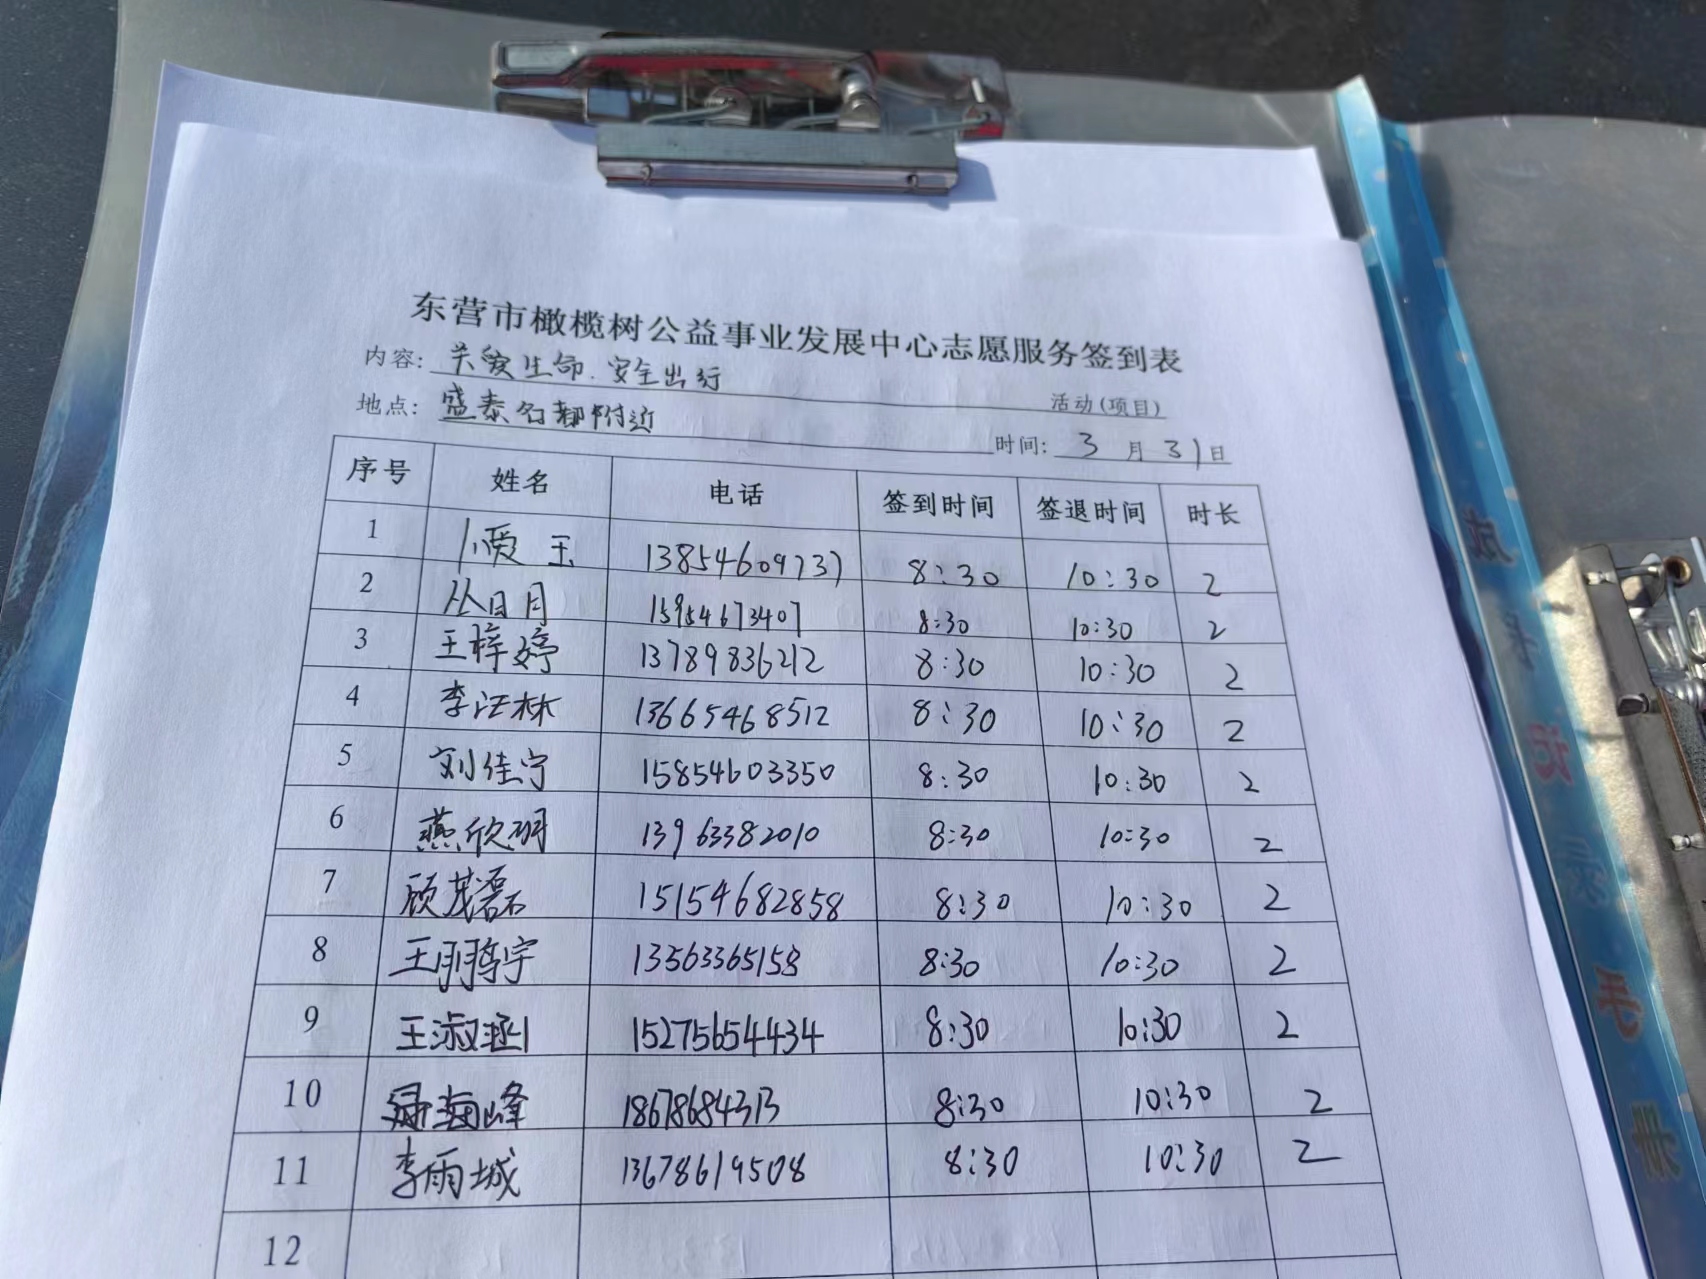 东营市橄榄树公益事业发展中心志愿服务签到表
内容: 关爱生命.安全出行 活动(项目)
地点: 盛泰名都附近 时间: 3月31日
序号 姓名 电话 签到时间 签退时间 时长
1 爱玉 13854609737 8:30 10:30 2
2 丛日月 15954673407 8:30 10:30 2
3 王梓婷 13789836212 8:30 10:30 2
4 李汪林 13665468512 8:30 10:30 2
5 刘佳宁 15854603350 8:30 10:30 2
6 燕欣玥 13963382010 8:30 10:30 2
7 顾茂磊 15154682858 8:30 10:30 2
8 王鹏宇 13563365158 8:30 10:30 2
9 王淑涵 15275654434 8:30 10:30 2
10 峰 18678684313 8:30 10:30 2
11 李雨城 13678619508 8:30 10:30 2
12